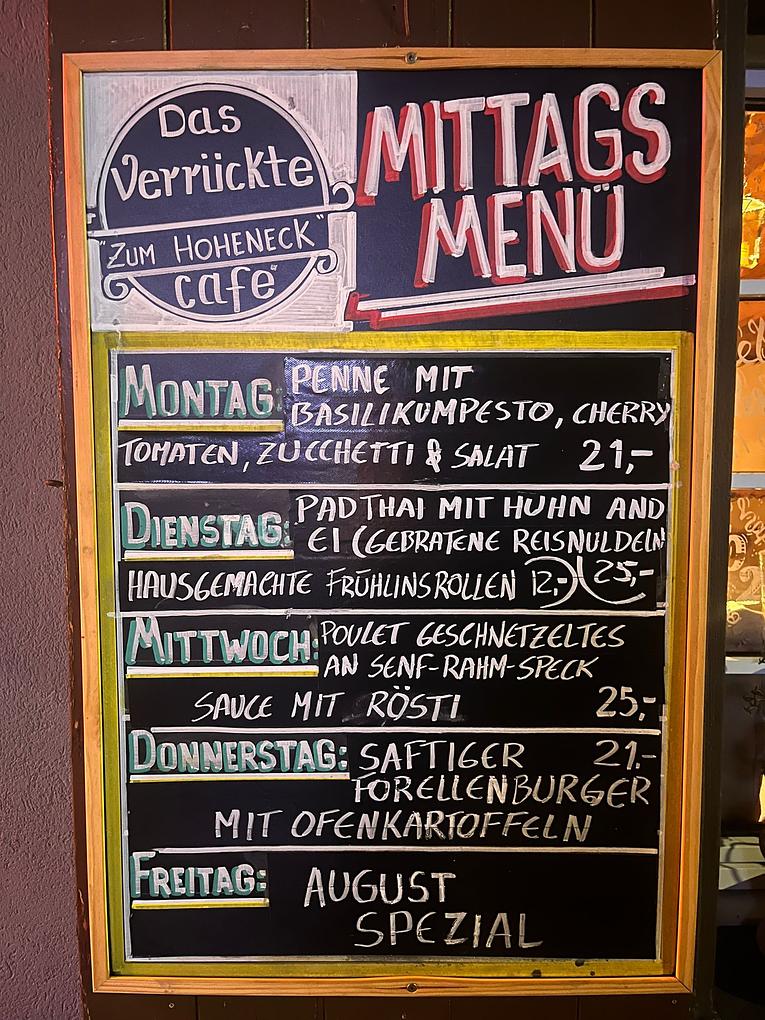 Das
Verrückte
"ZUM HOHENECK"
café
MITTAGS
MENÜ
MONTAG: PENNE MIT
BASILIKUMPESTO, CHERRY
TOMATEN, ZUCCHETTI & SALAT 21,-
DIENSTAG: PAD THAI MIT HUHN AND
EI (GEBRATENE REISNULDELN
HAUSGEMACHTE FRÜHLINSROLLEN 12,-) 25,-
MITTWOCH: POULET GESCHNETZELTES
AN SENF-RAHM-SPECK
SAUCE MIT RÖSTI 25,-
DONNERSTAG: SAFTIGER 21.-
FORELLENBURGER
MIT OFENKARTOFFELN
FREITAG: AUGUST
SPEZIAL